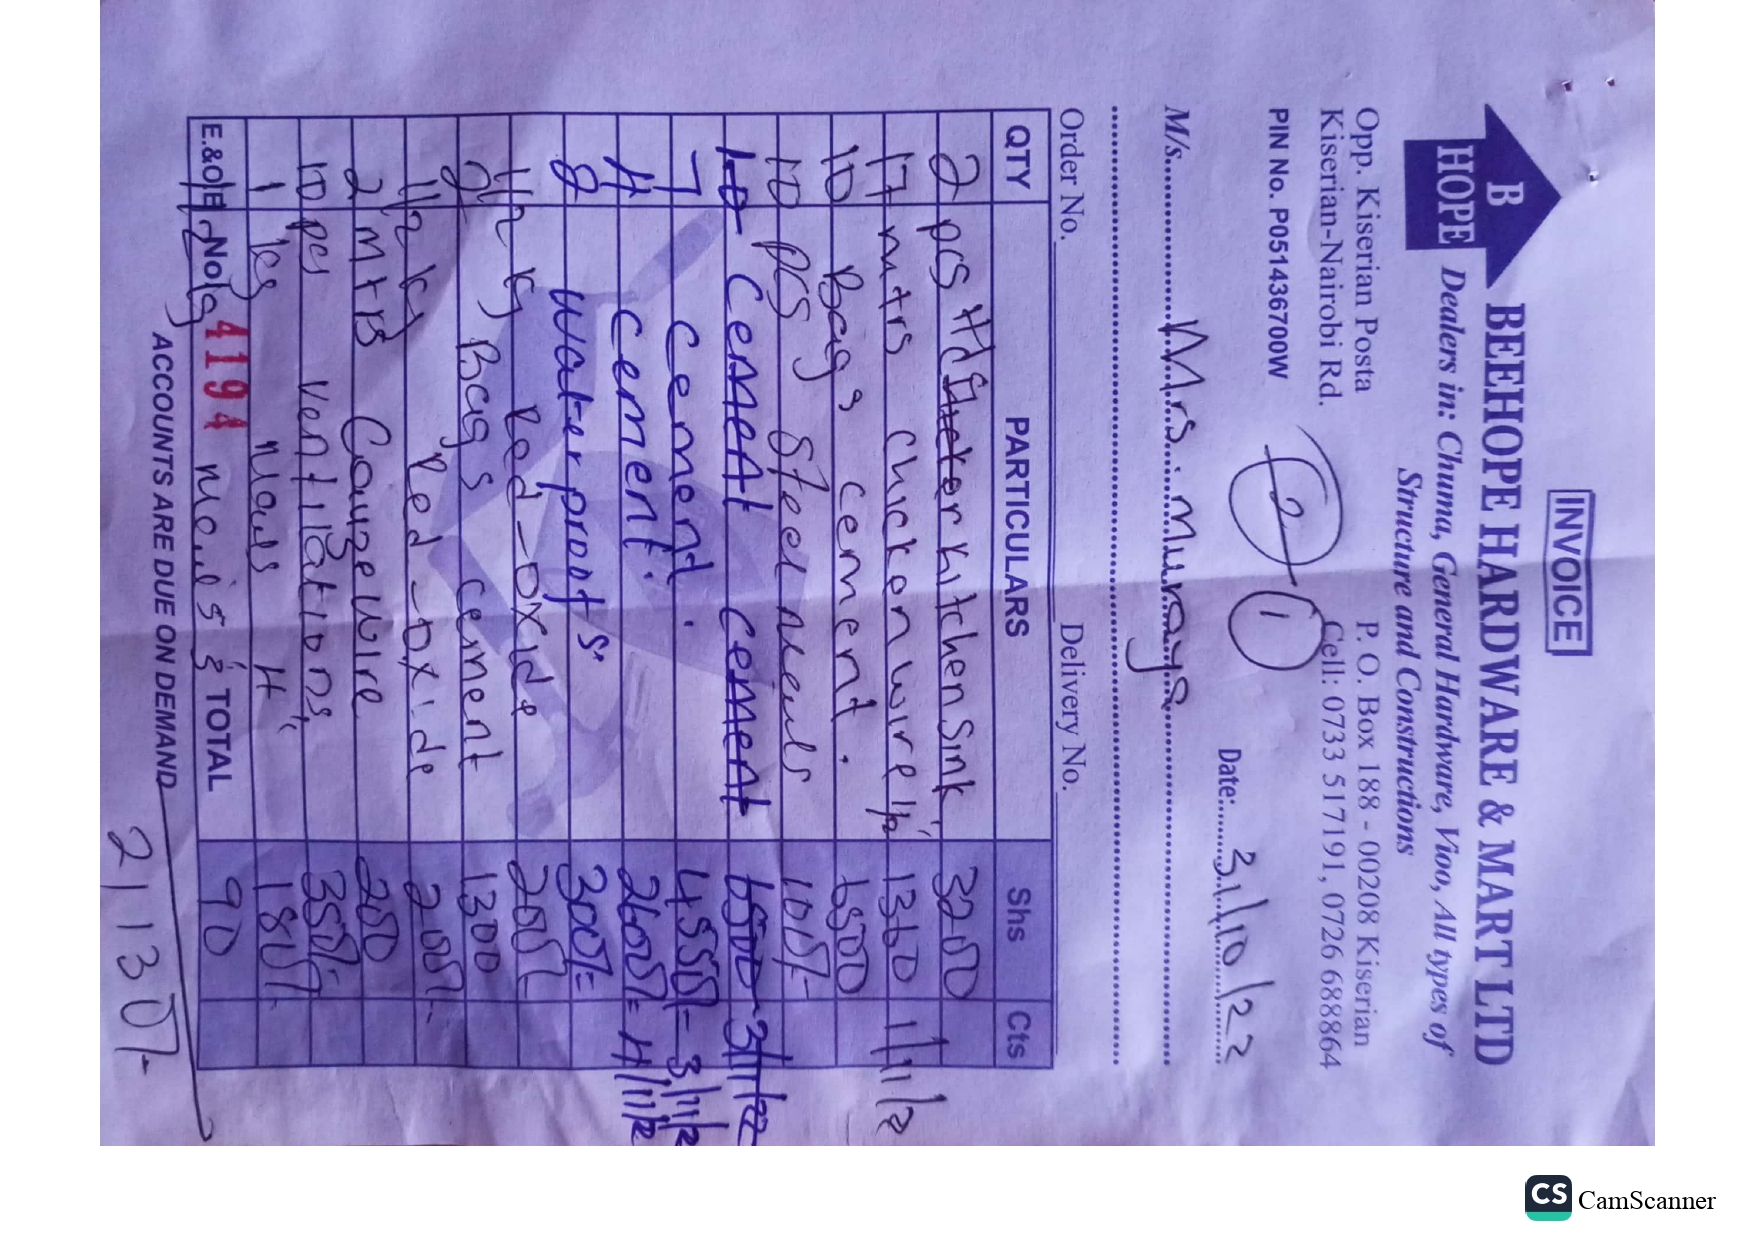 INVOICE
B
HOPE
BEEHOPE HARDWARE & MART LTD
Dealers in: Chuma, General Hardware, Vioo, All types of
Structure and Constructions
Opp. Kiserian Posta
P. O. Box 188 - 00208 Kiserian
Kiserian-Nairobi Rd.
Cell: 0733 517191, 0726 688864
PIN No. P051436700W
2
1
Date: 31/10/22
M/s. Mrs. Munya
Order No. Delivery No.
QTY PARTICULARS Shs Cts
2 pcs Kitchen Sink 3200
17 mtrs chicken wire 1/2" 1360 1/11/2
10 Bags cement. 6500
10 pcs Steel nails 10/-
10 Cement cement 6500 - 3/11/22
7 cement. 4550/= 3/11/2
4 cement. 2600/= 4/11/2
8 Water proofs. 300/=
1/2 kg Red-oxide 200/-
2 Bags cement 1300
1/2 kg Red-oxide 200/-
2 Mtrs Cauge wire 200
10 pcs Ventilations 350/=
1 kg nails 4" 180/-
E.&O.E No. 4194 TOTAL
1/2 kg nails 3" 90
ACCOUNTS ARE DUE ON DEMAND
21130/-
CS CamScanner